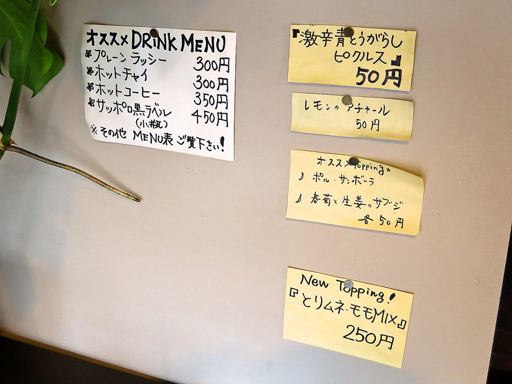 オススメ DRINK MENU
* プレーン ラッシー 300円
* ホットチャイ 300円
* ホットコーヒー 350円
* サッポロ黒ラベル 450円
(小瓶)
※ その他 MENU表 ご覧下さい!
『激辛青とうがらし
ピクルス』
50円
レモンのアチャール
50円
オススメTopping。
♪ ポル・サンボーラ
♪ 春菊と生姜のサブジ
各50円
New Topping!
『とりムネ・モモMIX』
250円